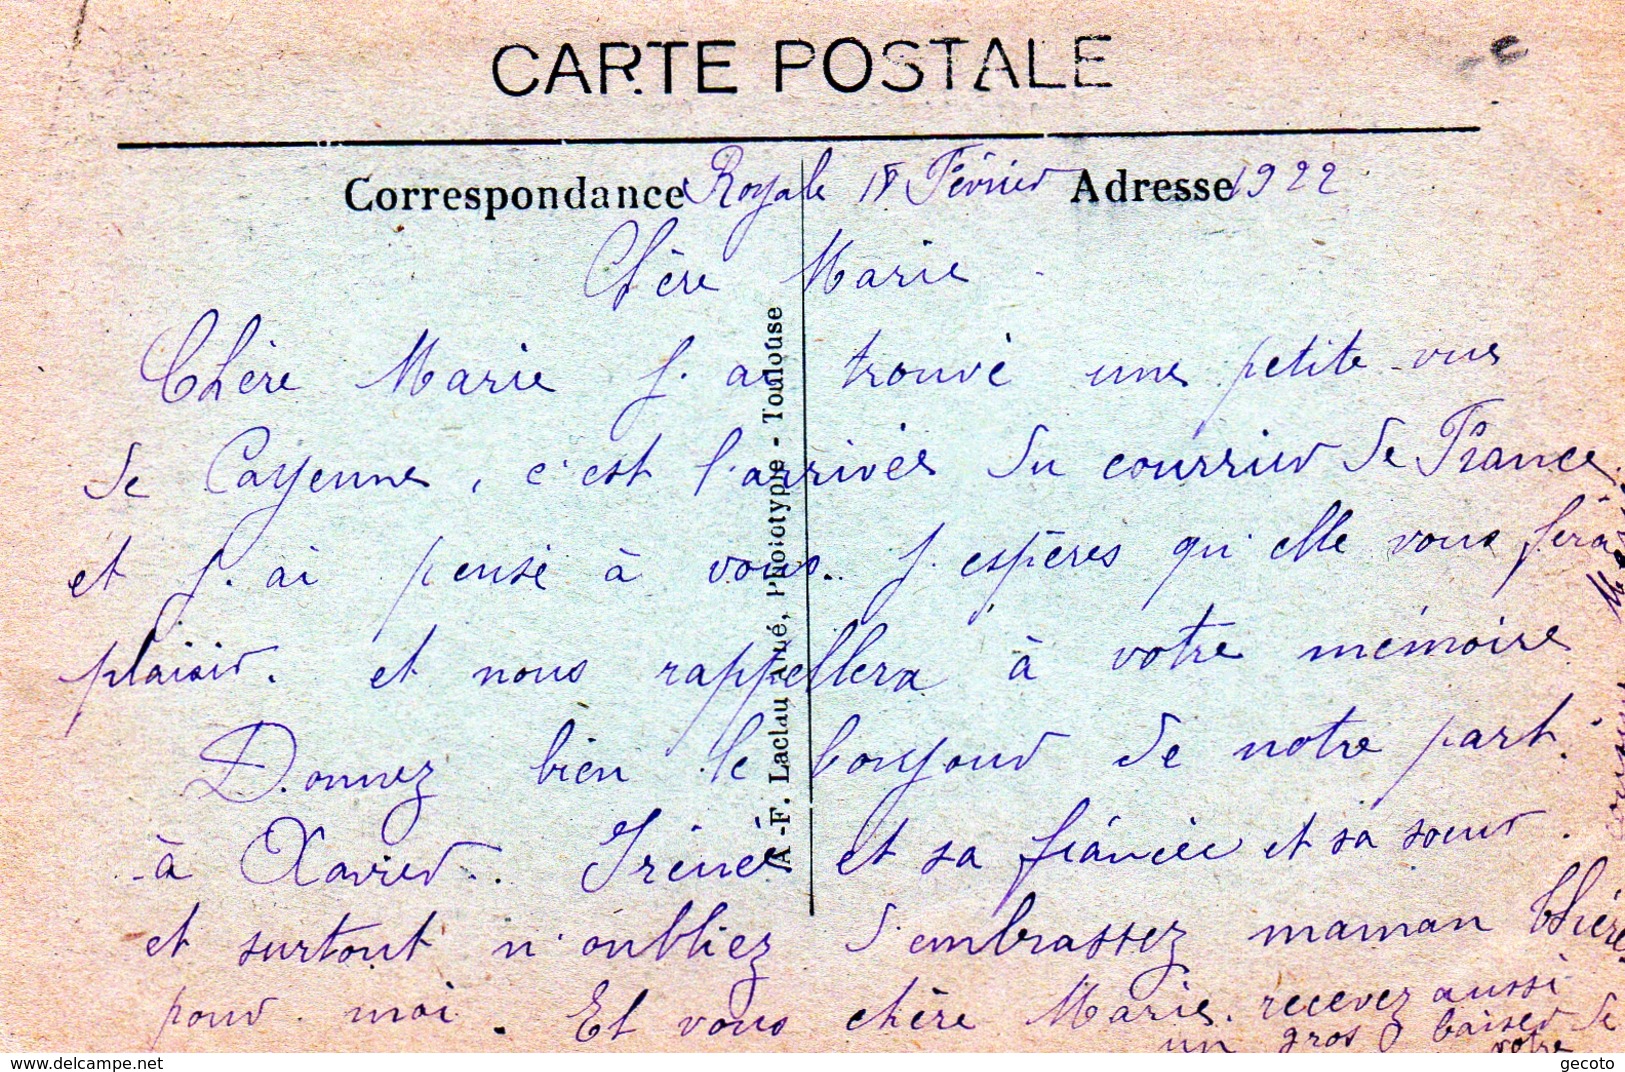 CARTE POSTALE
Correspondance Royale 18 Février Adresse 1922
Chère Marie
Chère Marie j. ai trouvé une petite vue
de Cayenne, c'est l'arrivée du courrier de France.
et j. ai pensé à vous.. j. espères qu'elle vous fera
plaisir. et nous rappellera à votre mémoire
Donnez bien le bonjour de notre part.
à Xavier.. Irénée et sa fiancée et sa soeur.
et surtout n'oubliez d'embrassez maman Thière
pour moi. Et vous chère Marie. recevez aussi
un gros baiser de
votre
A.-F. Laclau Aîné, Phototypie - Toulouse
gecoto